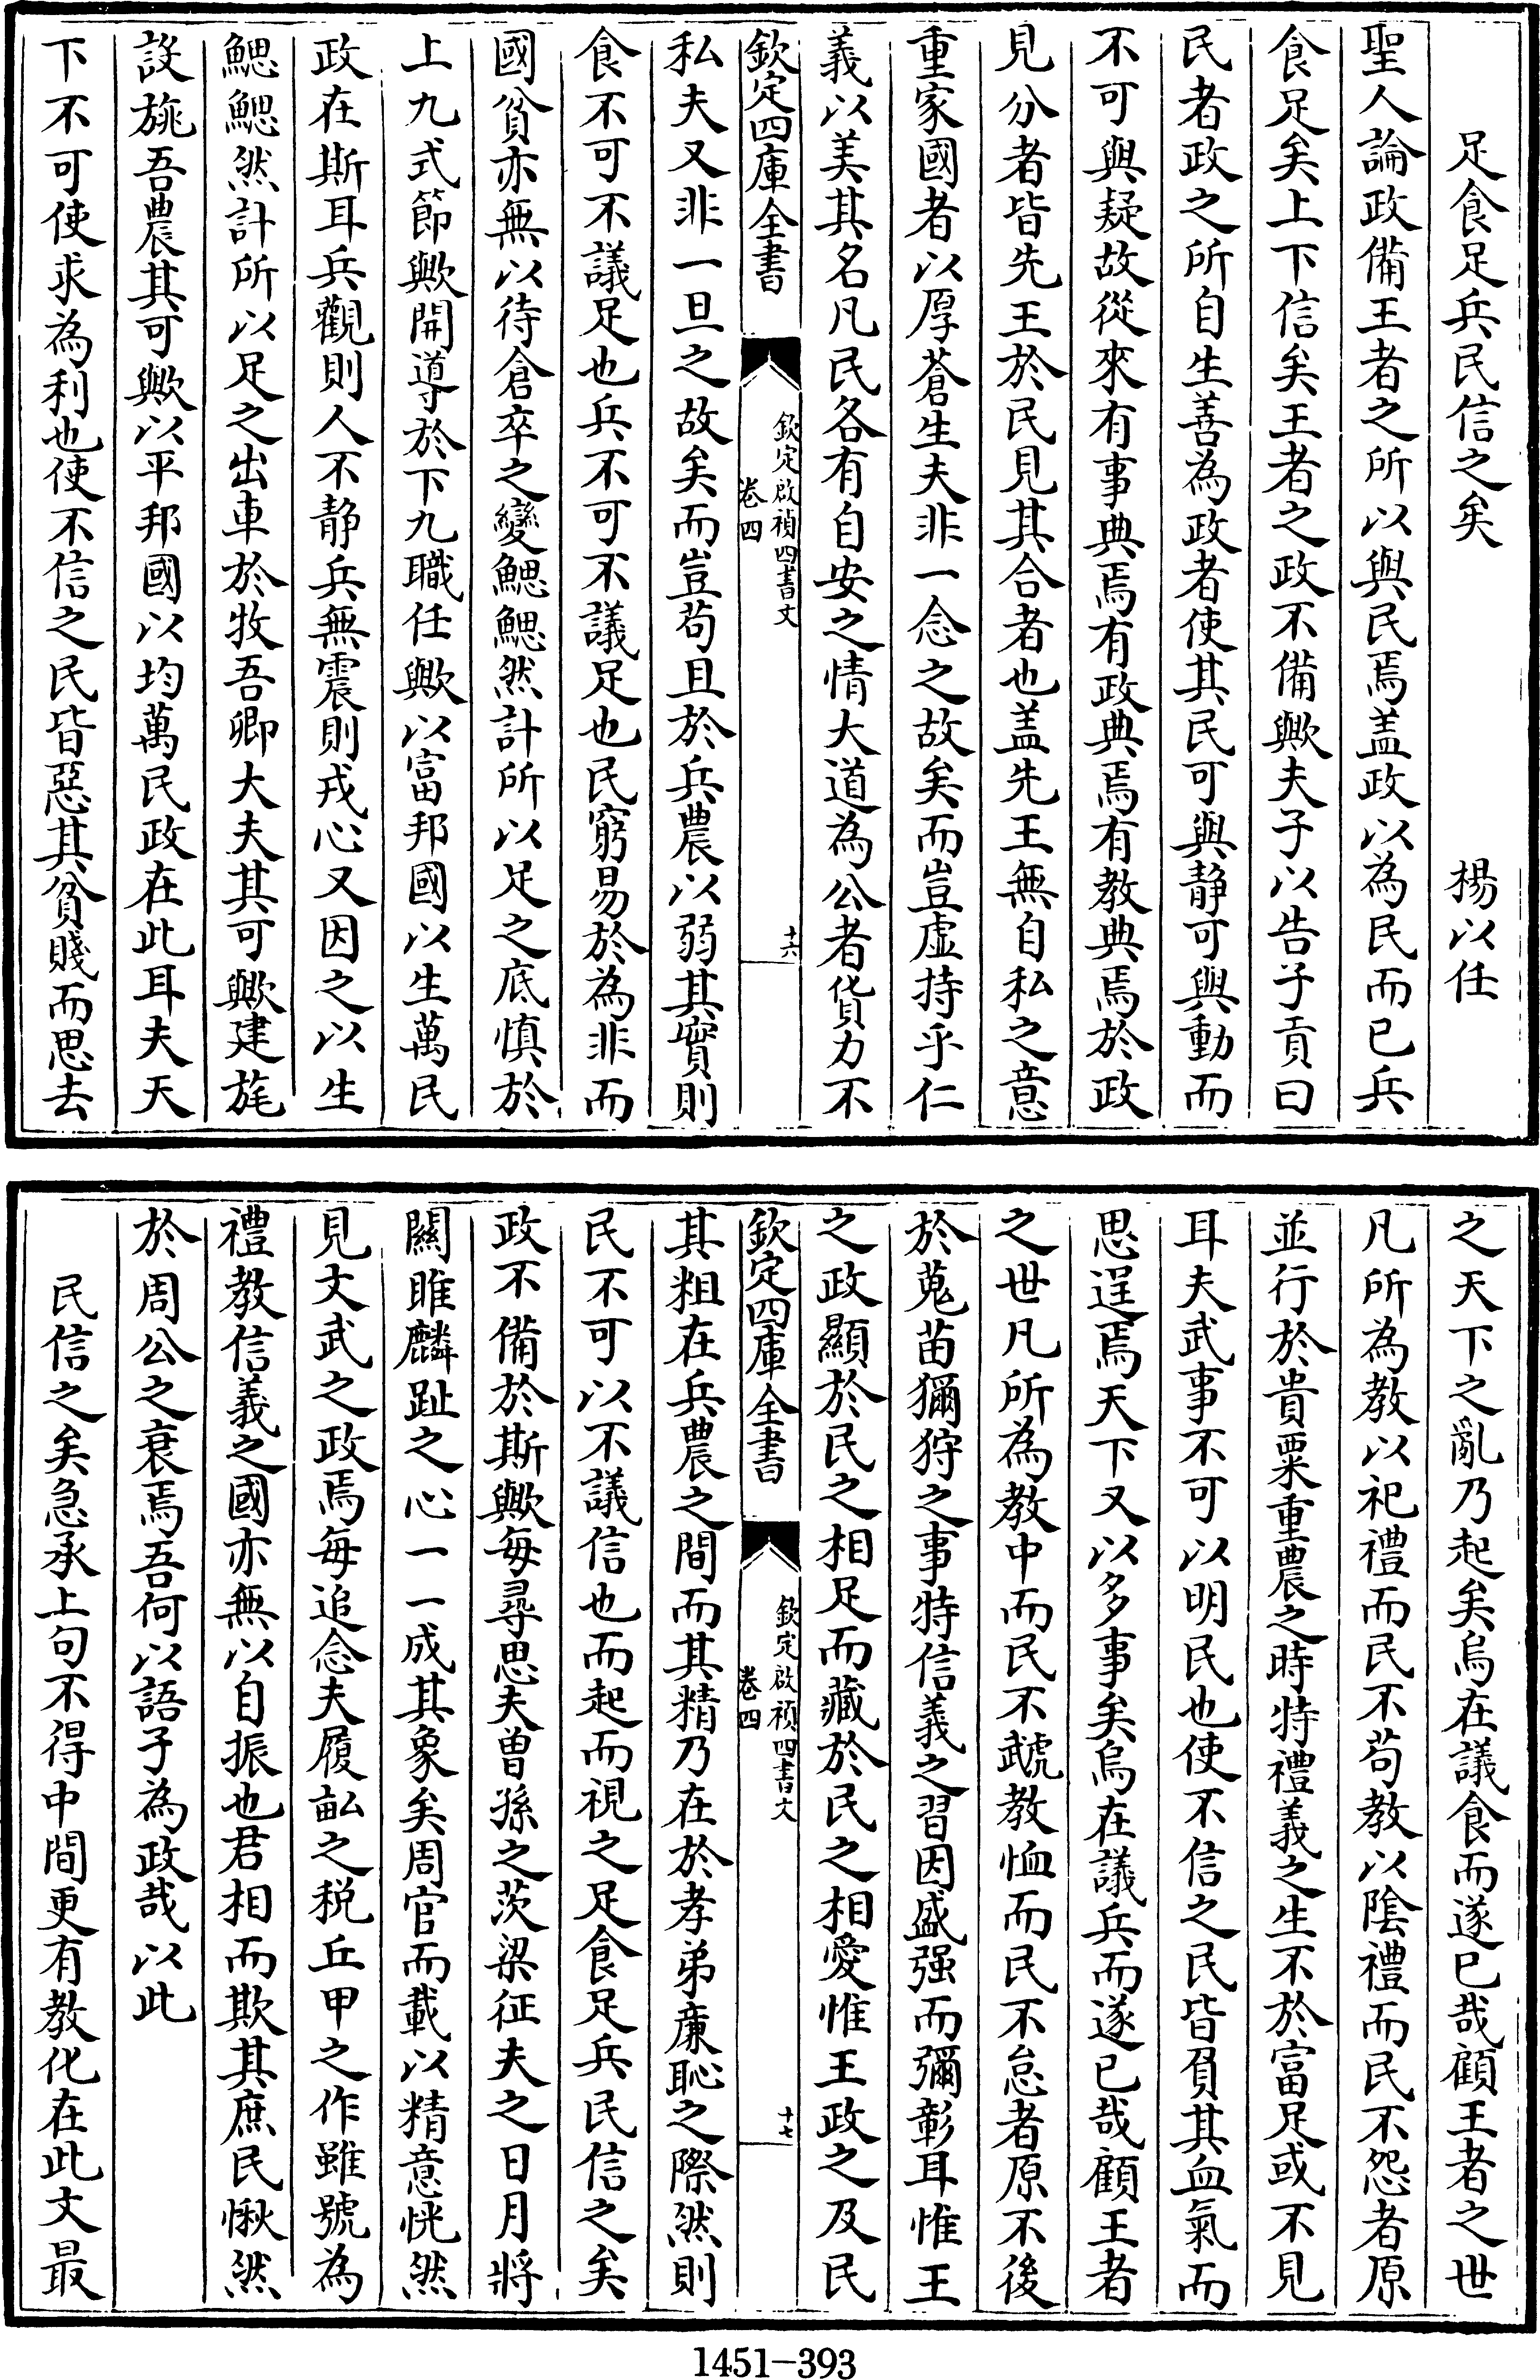 足食足兵民信之矣　楊以任
聖人論政備王者之所以與民焉盖政以為民而已兵
食足矣上下信矣王者之政不備歟夫子以告子貢曰
民者政之所自生善為政者使其民可與靜可與動而
不可與疑故從來有事典焉有政典焉有教典焉於政
見分者皆先王於民見其合者也盖先王無自私之意
重家國者以厚蒼生夫非一念之故矣而豈虛持乎仁
義以美其名凡民各有自安之情大道為公者貨力不
欽定四庫全書
欽定啟禎四書文
卷四
十六
私夫又非一旦之故矣而豈苟且於兵農以弱其實則
食不可不議足也兵不可不議足也民窮易於為非而
國貧亦無以待倉卒之變鰓鰓然計所以足之底慎於
上九式節歟開導於下九職任歟以富邦國以生萬民
政在斯耳兵觀則人不靜兵無震則戎心又因之以生
鰓鰓然計所以足之出車於牧吾卿大夫其可歟建旄
設旐吾農其可歟以平邦國以均萬民政在此耳夫天
下不可使求為利也使不信之民皆惡其貧賤而思去
之天下之亂乃起矣烏在議食而遂已哉顧王者之世
凡所為教以祀禮而民不苟教以陰禮而民不怨者原
並行於貴粟重農之時特禮義之生不於富足或不見
耳夫武事不可以明民也使不信之民皆負其血氣而
思逞焉天下又以多事矣烏在議兵而遂已哉顧王者
之世凡所為教中而民不虣教恤而民不怠者原不後
於蒐苗獮狩之事特信義之習因盛强而彌彰耳惟王
之政顯於民之相足而藏於民之相愛惟王政之及民
欽定四庫全書
欽定啟禎四書文
卷四
十七
其粗在兵農之間而其精乃在於孝弟廉恥之際然則
民不可以不議信也而起而視之足食足兵民信之矣
政不備於斯歟每尋思夫曾孫之茨梁征夫之日月將
關雎麟趾之心一一成其象矣周官而載以精意恍然
見文武之政焉每追念夫履畝之税丘甲之作雖號為
禮教信義之國亦無以自振也君相而欺其庶民愀然
於周公之衰焉吾何以語子為政哉以此
民信之矣急承上句不得中間更有教化在此文最
1451-393